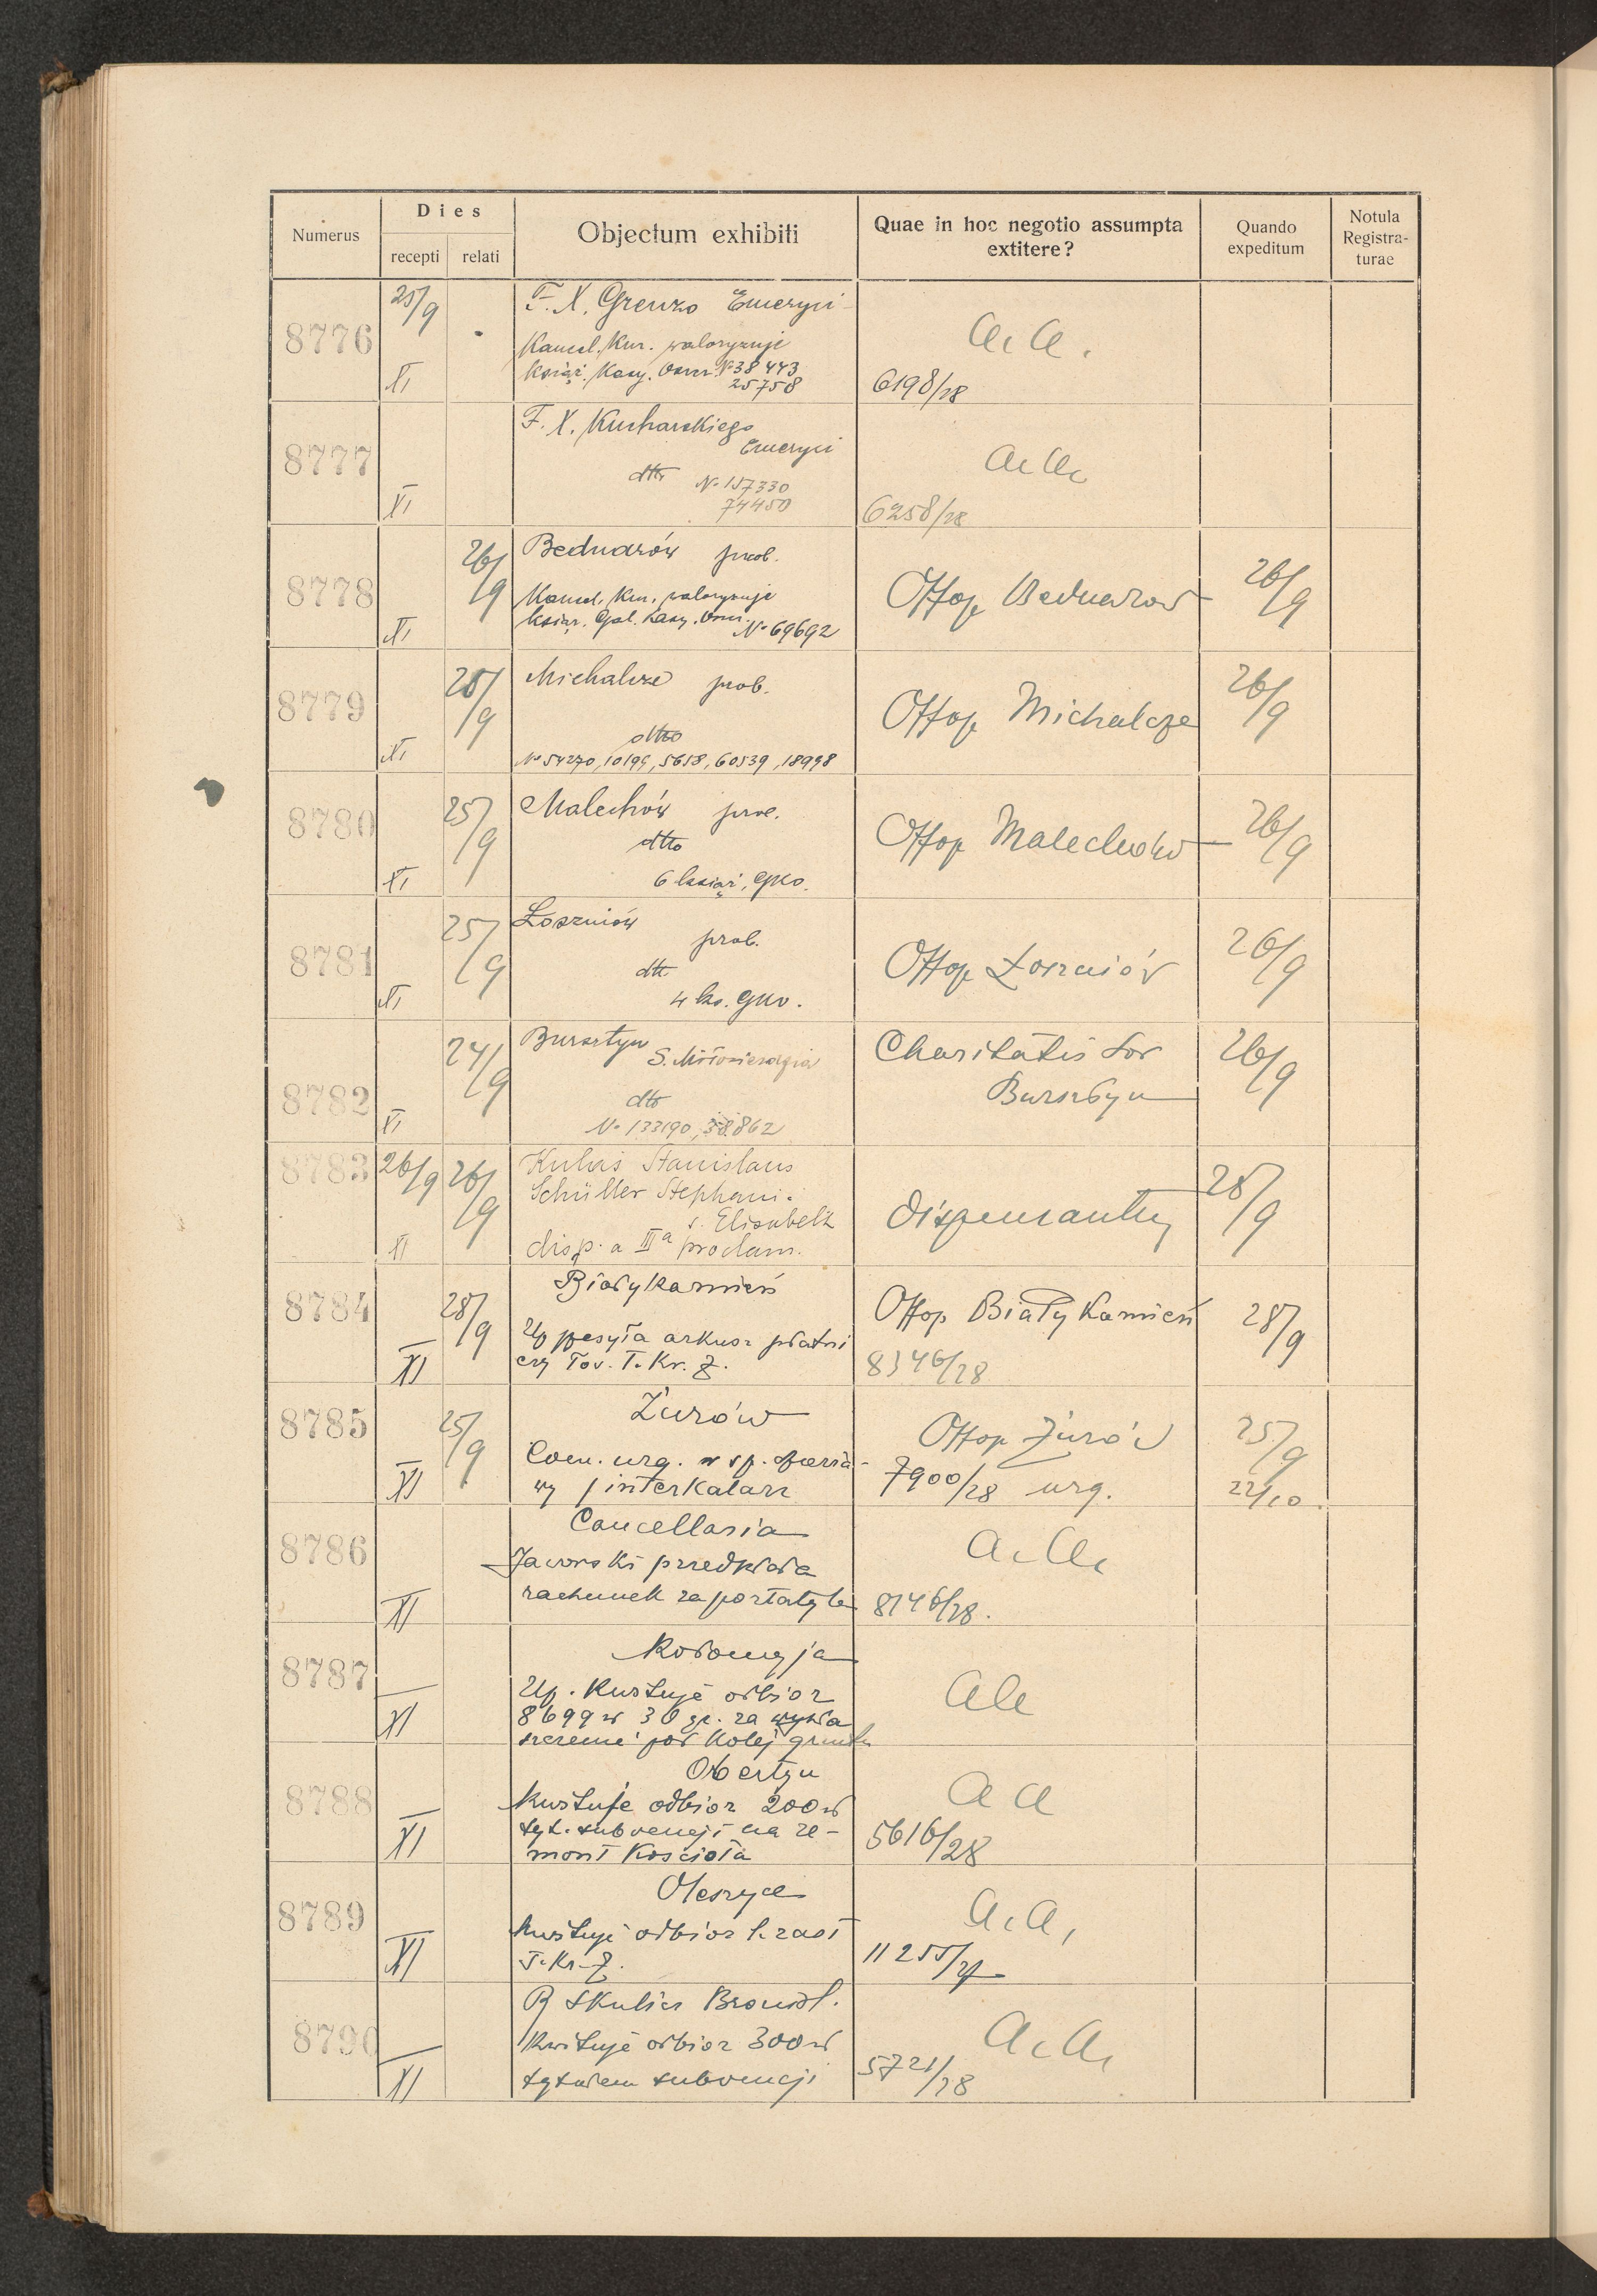 Numerus
Dies
recepti relati
Objectum exhibiti
Quae in hoc negotio assumpta
extitere?
Quando
expeditum
Notula
Registra-
turae
8776
25/9
XI
F. X. Emeryci
Kancel. Kur. waloryzuje
książ. Kasy. Oszcz. No 38 443
25758
a. a.
6198/28
8777
XI
F. X. Kucharskiego
Emeryci
dtto No 157330
74450
a. a.
6258/28
8778
XI
26/9
Bednarów prob.
Kancel. Kur. waloryzuje
książ. Gal. Kasy. Oszcz.
No 69692
Offop Bednarów
26/9
8779
XI
25/9
Michalcze prob.
dtto
No 54270, 10199, 5658, 60539, 18998
Offop Michalcze
26/9
8780
XI
25/9
Malechów prob.
dtto
6 książ. GKO.
Offop Malechów
26/9
8781
XI
25/9
Łoszniów
prob.
dtt
4 ks. GKO.
Offop Łoszniów
26/9
8782
XI
24/9
Bursztyn
S. Miłosierdzia
dtto
No 133190, 38862
Charitatis Sor
Bursztyn
26/9
8783
26/9
XI
26/9
Stanislaus
Schüller Stephani.
v. Elisabeth
disp. a IIIa proclam.
Dispensantur
28/9
8784
XI
28/9
Białykamień
Up przesyła arkusz płatni
czy Tow. T. Kr. Z.
Offop Biały Kamień
8346/28
28/9
8785
XI
25/9
Żurów
urg. w sp.
wy interkalarz
Offop Żurów
7900/28 urg.
25/9
22/10.
8786
XI
Cancellaria
Jaworski przedkłada
rachunek za portatyle
a. a.
8146/28.
8787
XI
Kołomyja
Up. Kwituje odbiór
8699 zł 30 gr. za wywła
szczenie pod kolej gruntu
aa
8788
XI
Obertyn
Kwituje odbiór 200 zł
tyt. subvencji na re-
mont Kościoła
a a
5616/28
8789
XI
Oleszyce
Kwituje odbiór l. zast
T. Kr. Z.
a. a,
11255/27
8790
XI
R Skulicz
Kwituje odbiór 300 zł
tytułem subvencji
a. a.
5721/28